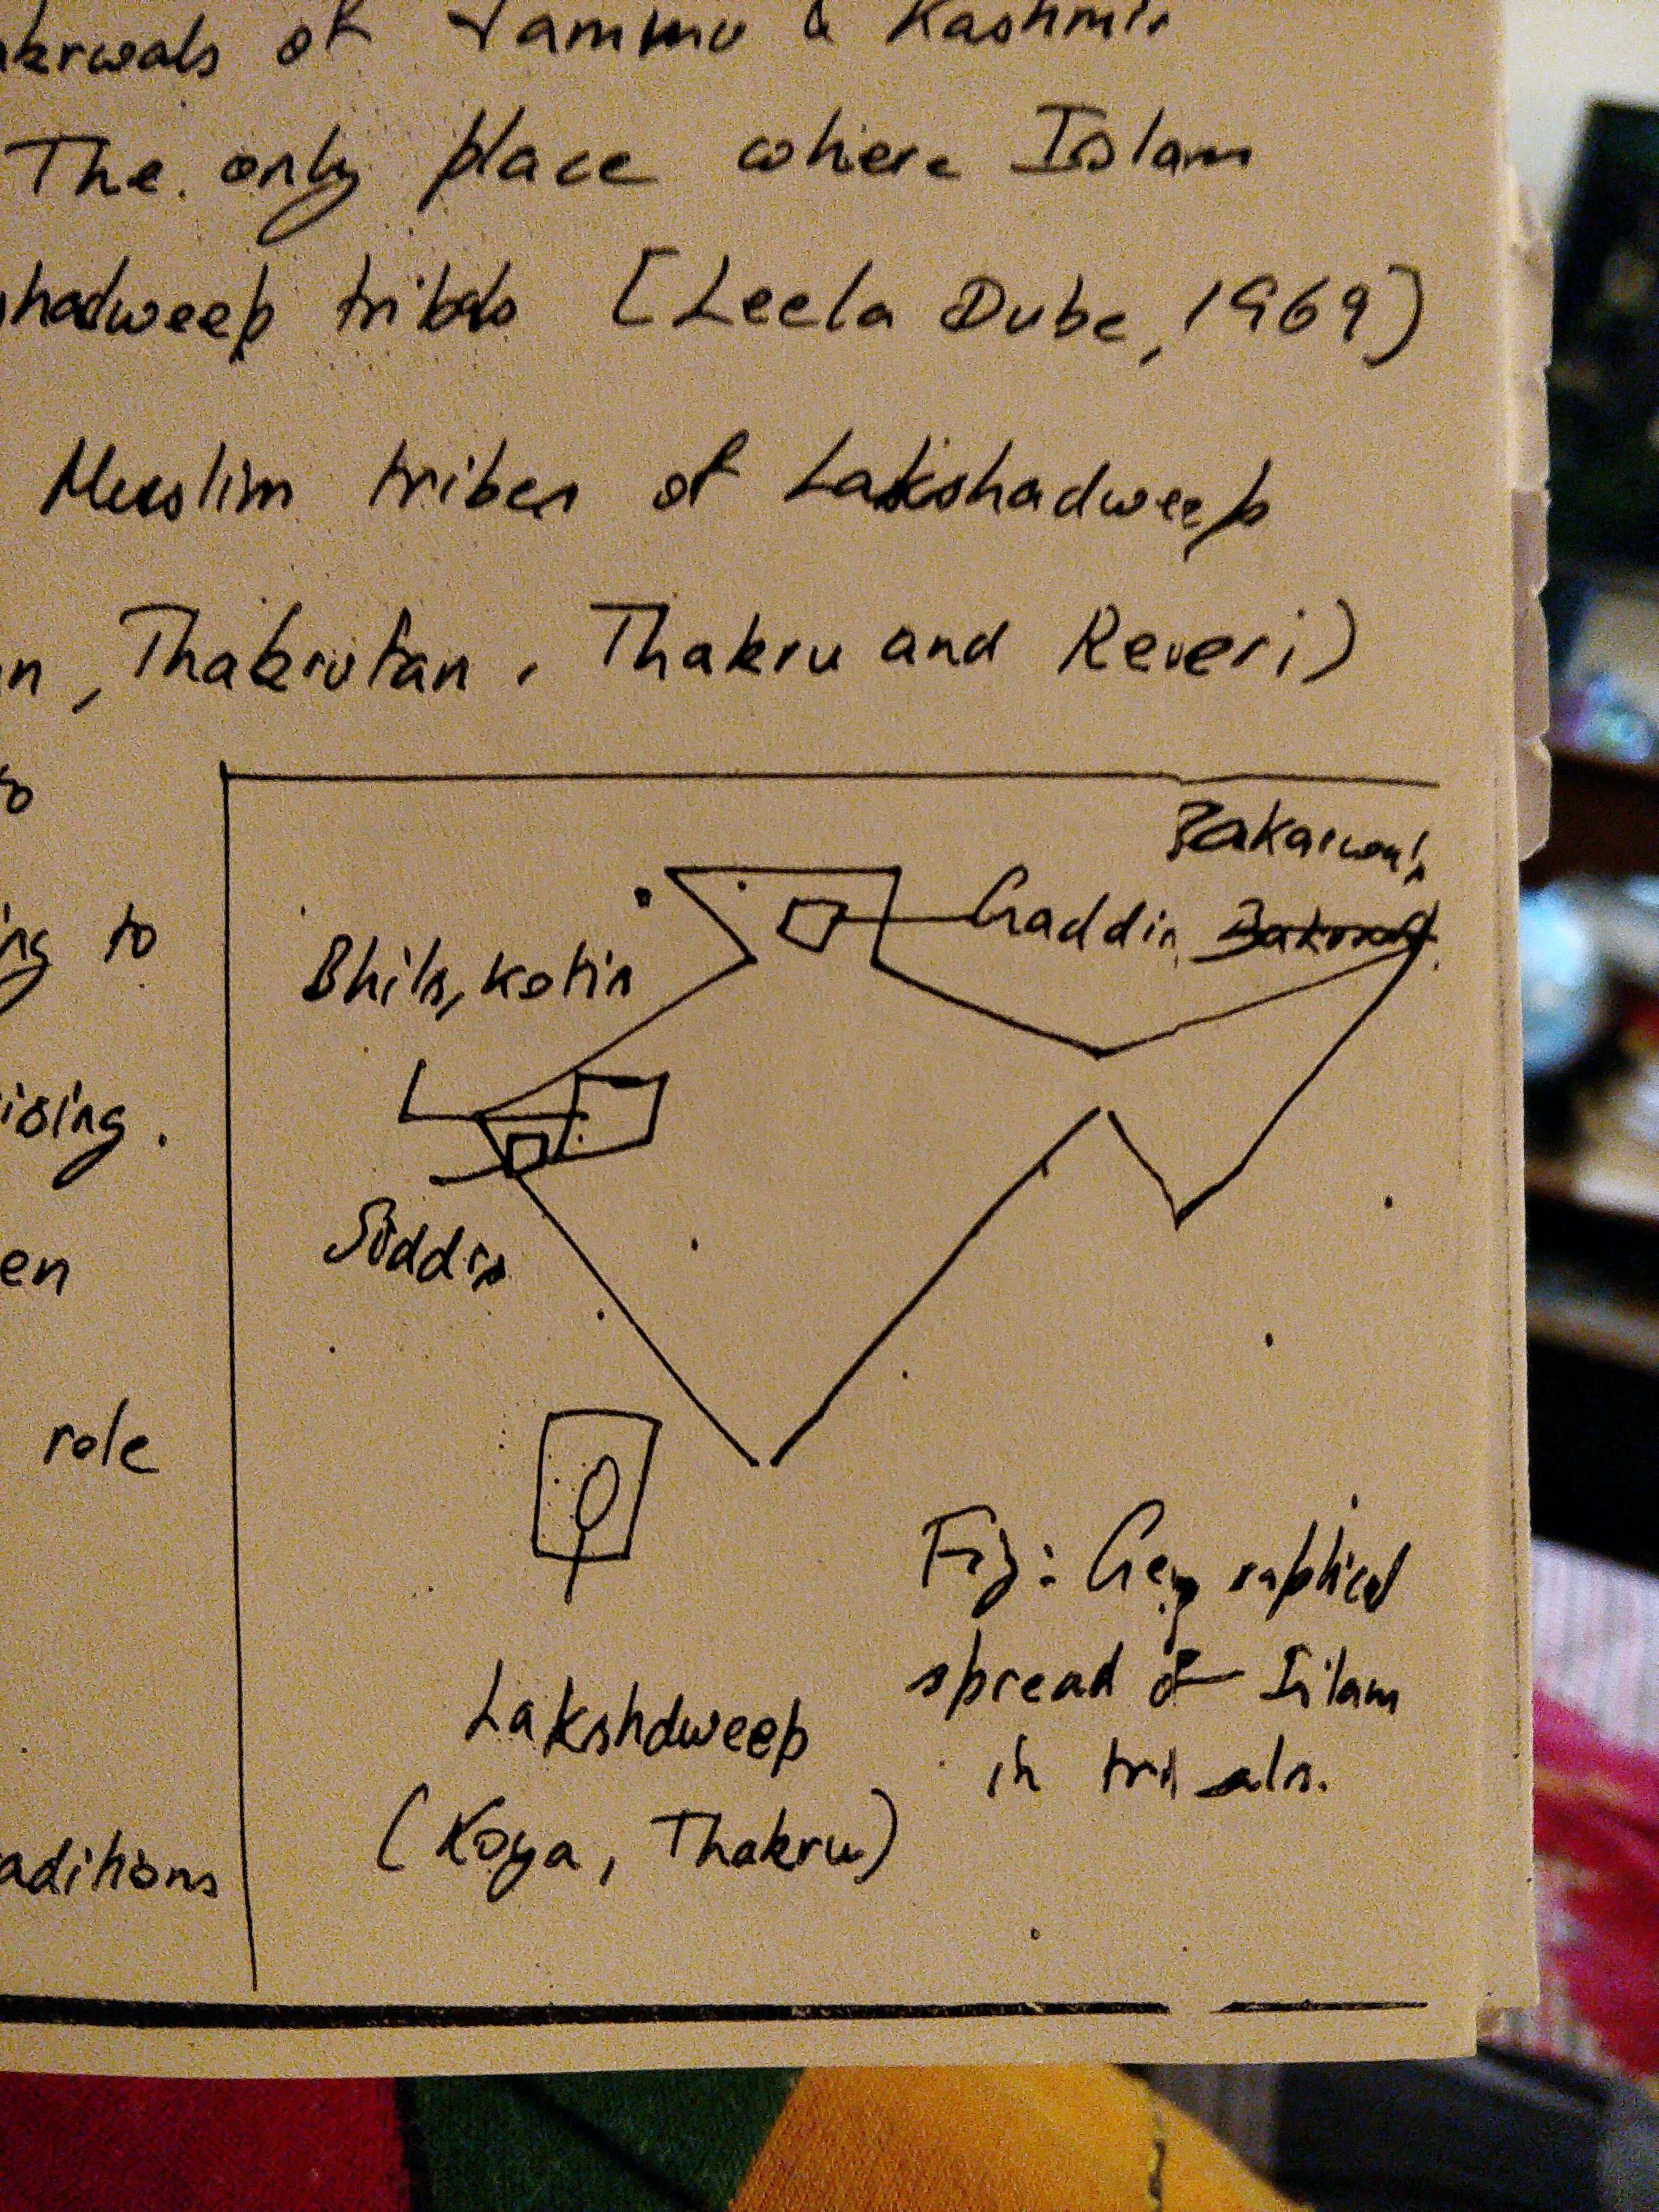 akerwals of Jammu & Kashmir
The only place where Islam
shadweep tribals [Leela Dube, 1969)
Muslim tribes of Lakshadweep
n, Thakrutan, Thakru and Reveri)
ng to
ising.
en
role
aditions
Bakarwals
Gaddis,
Bhils, Kotis
Siddis
Lakshdweep
(Koya, Thakru)
Fig: Geographical
spread of Islam
in tribals.